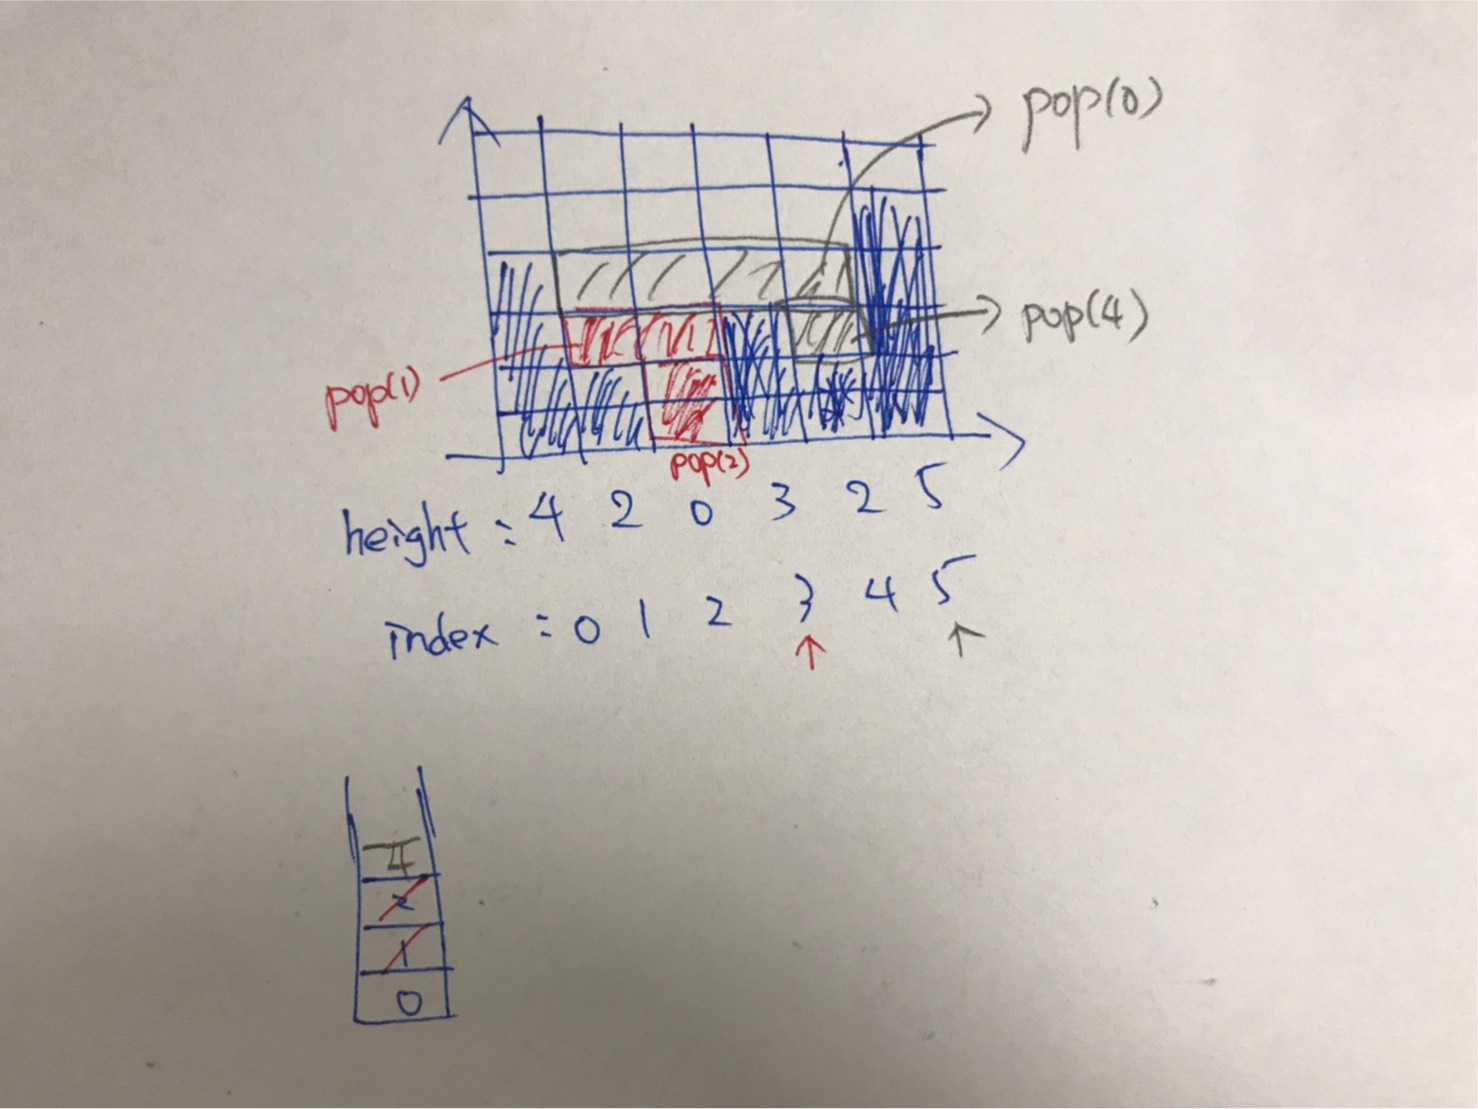 pop(0)
pop(4)
pop(1)
pop(2)
height : 4 2 0 3 2 5
index : 0 1 2 3 4 5
4
2
1
0